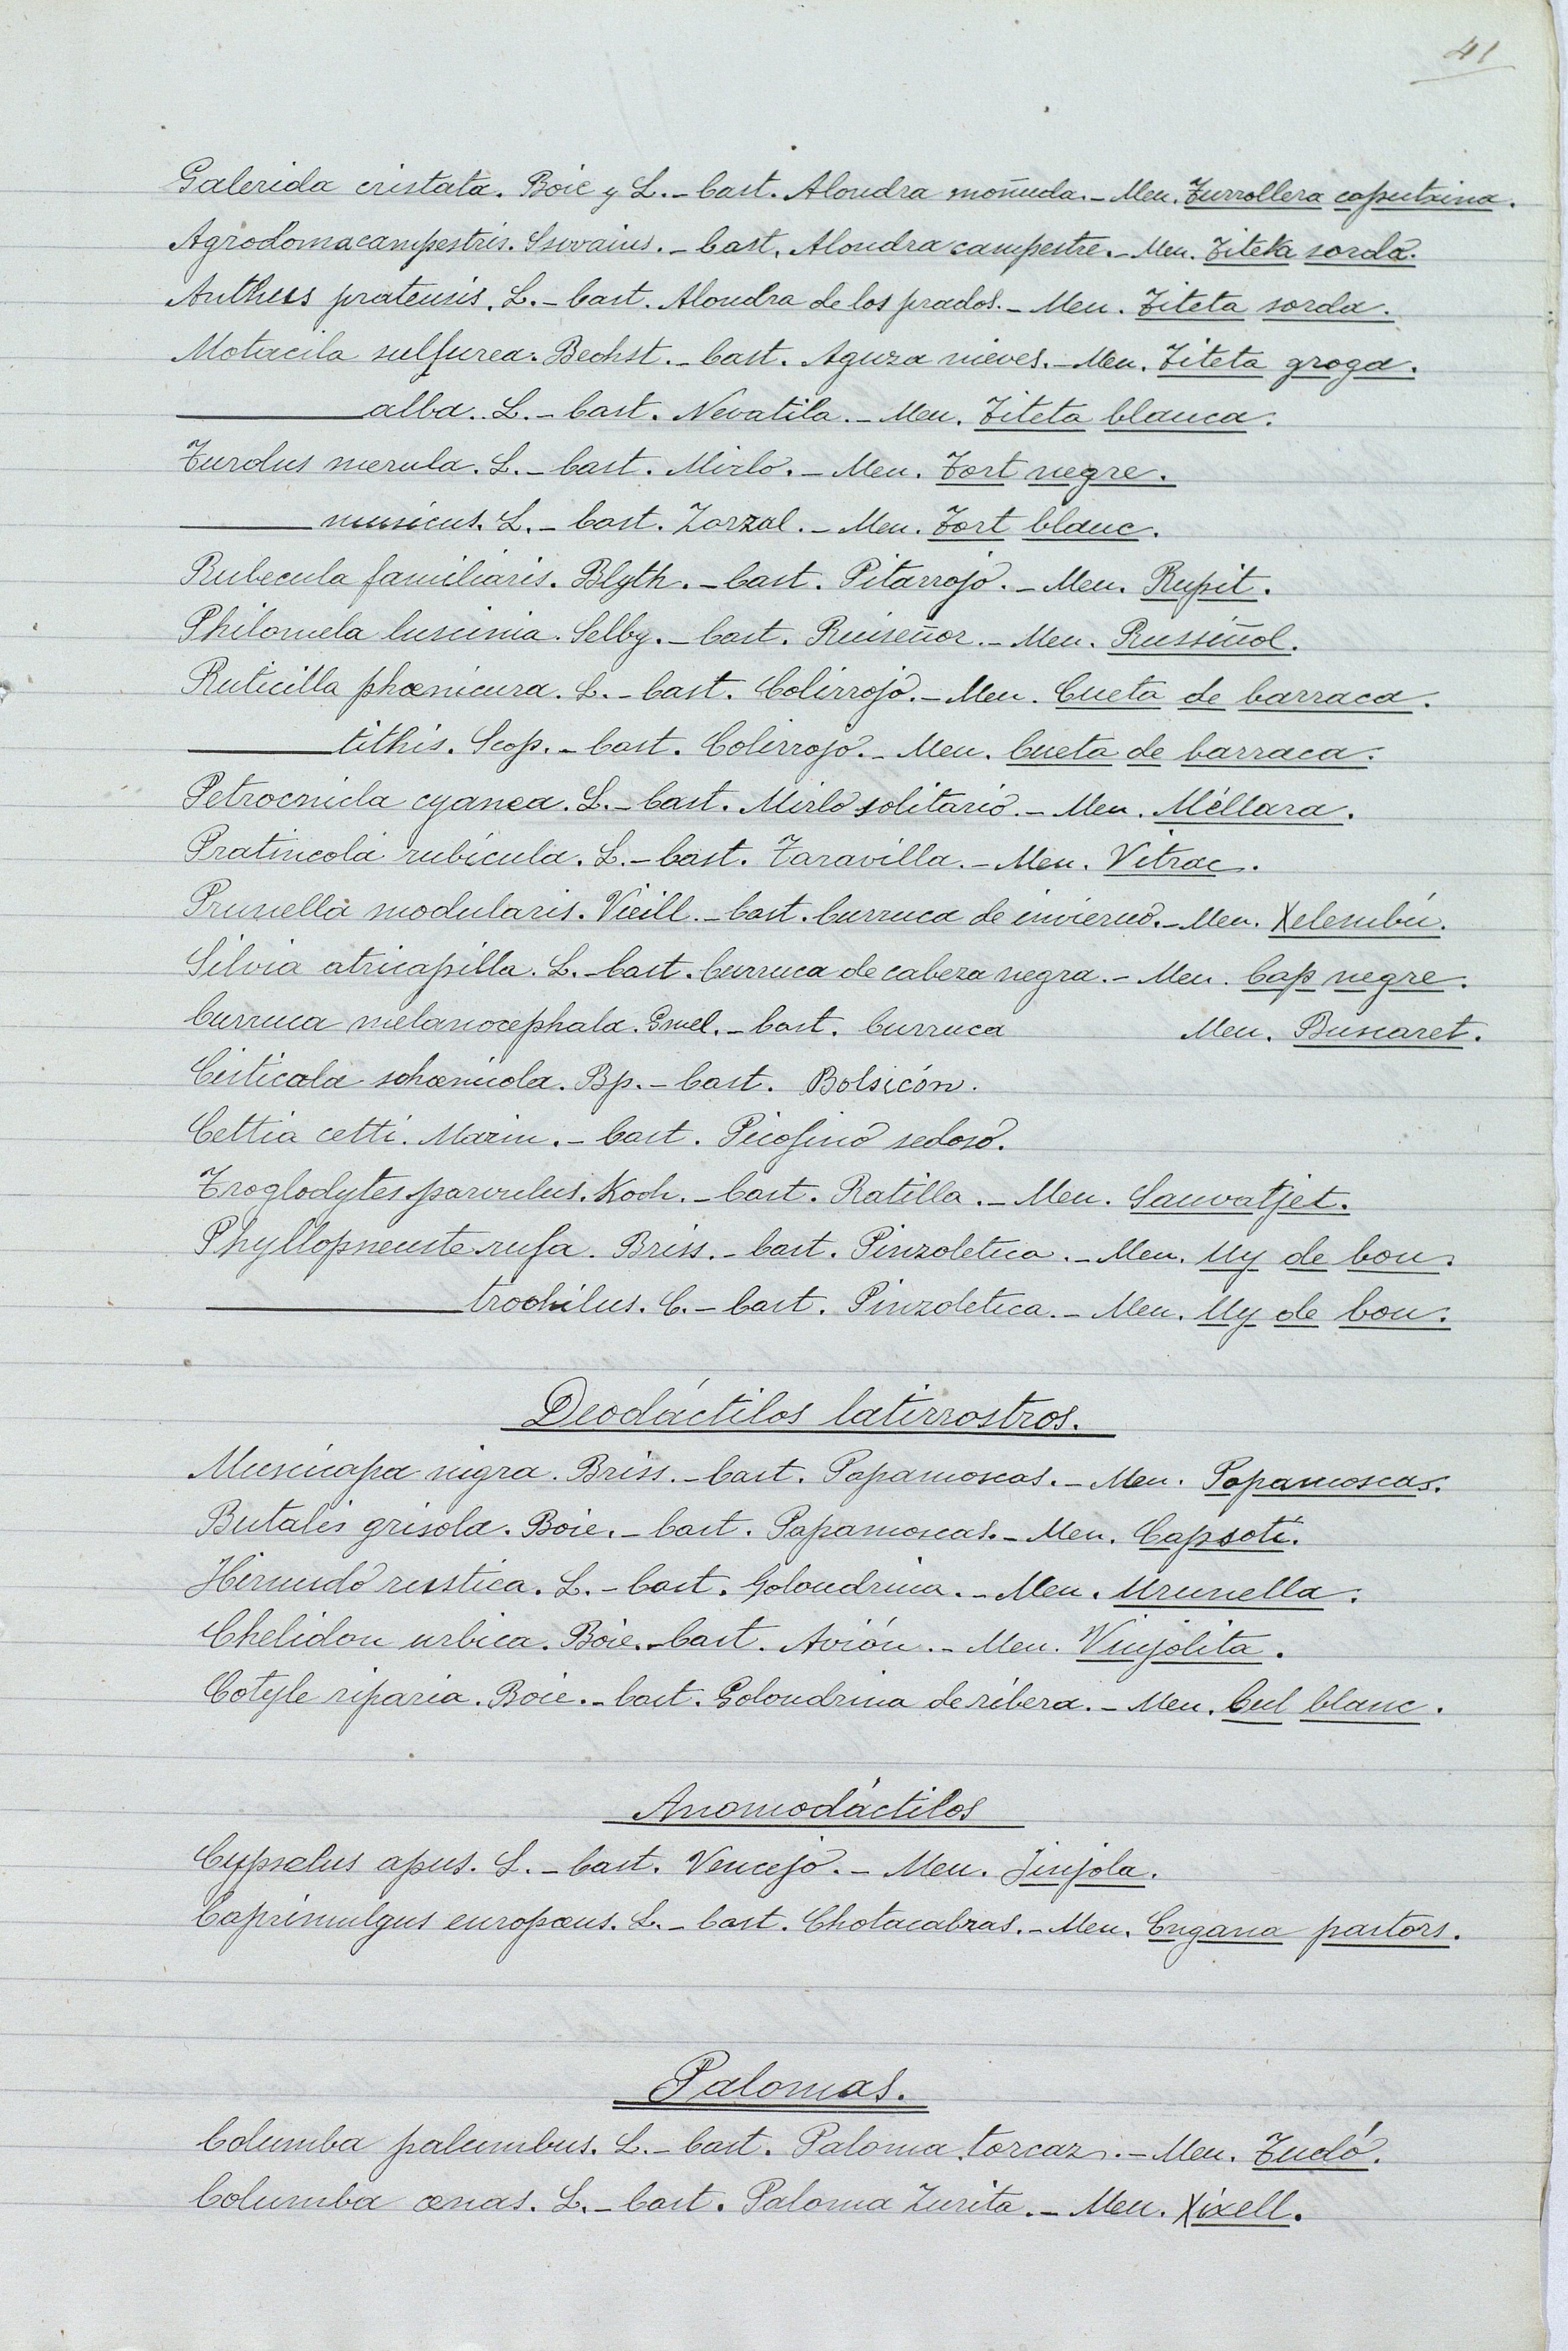 41
Galerida cristata. Boie y L. - Cast. Alondra moñuda. - Men. Turrollera caputxina.
Agrodoma campestris. Swains. - Cast. Alondra campestre. - Men. Titeta sorda.
Anthus pratensis. L. - Cast. Alondra de los prados. - Men. Titeta sorda.
Motacila sulfurea. Bechst. - Cast. Aguza nieves. - Men. Titeta groga.
——— alba. L. - Cast. Nevatila. - Men. Titeta blanca.
Turdus merula. L. - Cast. Mirlo. - Men. Tort negre.
——— musicus. L. - Cast. Zorzal. - Men. Tort blanc.
Rubecula familiaris. Blyth. - Cast. Pitarrojo. - Men. Rupit.
Philomela luscinia. Selby. - Cast. Ruiseñor. - Men. Russiñol.
Ruticilla phœnicura. L. - Cast. Colirrojo. - Men. Cueta de barraca.
——— tithis. Scop. - Cast. Colirrojo. - Men. Cueta de barraca.
Petrocnicla cyanea. L. - Cast. Mirlo solitario. - Men. Méllara.
Pratincola rubicula. L. - Cast. Taravilla. - Men. Vitrac.
Prunella modularis. Vieill. - Cast. Curruca de invierno. - Men. Xelembú.
Silvia atricapilla. L. - Cast. Curruca de cabeza negra. - Men. Cap negre.
Curruca melanocephala. Gmel. - Cast. Curruca Men. Buscaret.
Cisticala schœnicola. Bp. - Cast. Bolsicón.
Cettia cetti. Marm. - Cast. Picofino sedoso.
Troglodytes parvulus. Koch. - Cast. Ratilla. - Men. Sauvatjet.
Phyllopneuste rufa. Briss. - Cast. Pinzoletica. - Men. Uy de bou.
——— trochilus. C. - Cast. Pinzoletica. - Men. Uy de bou.
Deodáctilos latirrostros.
Muscicapa nigra. Briss. - Cast. Papamoscas. - Men. Papamoscas.
Butalis grisola. Boie. - Cast. Papamoscas. - Men. Capsotí.
Hirundo rustica. L. - Cast. Golondrina. - Men. Urunella.
Chelidon urbica. Boie. - Cast. Avión. - Men. Vinjolita.
Cotyle riparia. Boie. - Cast. Golondrina de ribera. - Men. Cul blanc.
Anomodáctilos
Cypselus apus. L. - Cast. Vencejo. - Men. Jinjola.
Caprimulgus europœus. L. - Cast. Chotacabras. - Men. Engana pastors.
Palomas.
Columba palumbus. L. - Cast. Paloma torcaz. - Men. Tudó.
Columba œnas. L. - Cast. Paloma Zurita. - Men. Xixell.